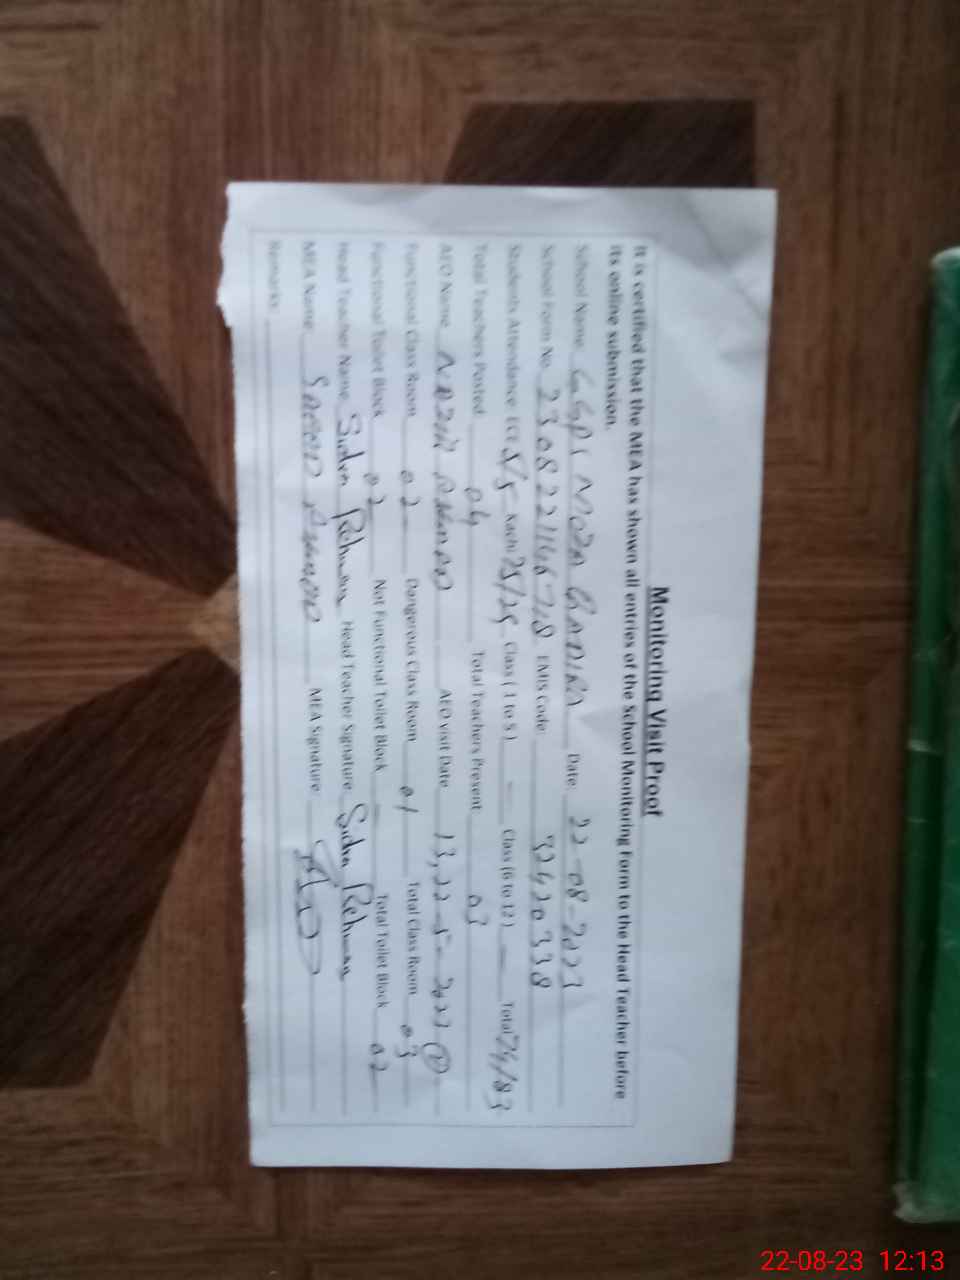 Monitoring Visit Proof
It is certified that the MEA has shown all entries of the School Monitoring Form to the Head Teacher before
its online submission.
School Name GGPS Date: 22-08-2023
School Form No. EMIS Code: 32420338
Students Attendance ECE Kachi Class ( 1 to 5 ) - Class (6 to 12 ) - Total 74/83
Total Teachers Posted 04 Total Teachers Present 03
AEO Name NAZIR AHMAD AEO visit Date
Functional Class Room 02 Dangerous Class Room 01 Total Class Room 03
Functional Toilet Block 02 Not Functional Toilet Block - Total Toilet Block 02
Head Teacher Name Rehman Head Teacher Signature Rehman
MEA Name MEA Signature
Remarks
22-08-23 12:13